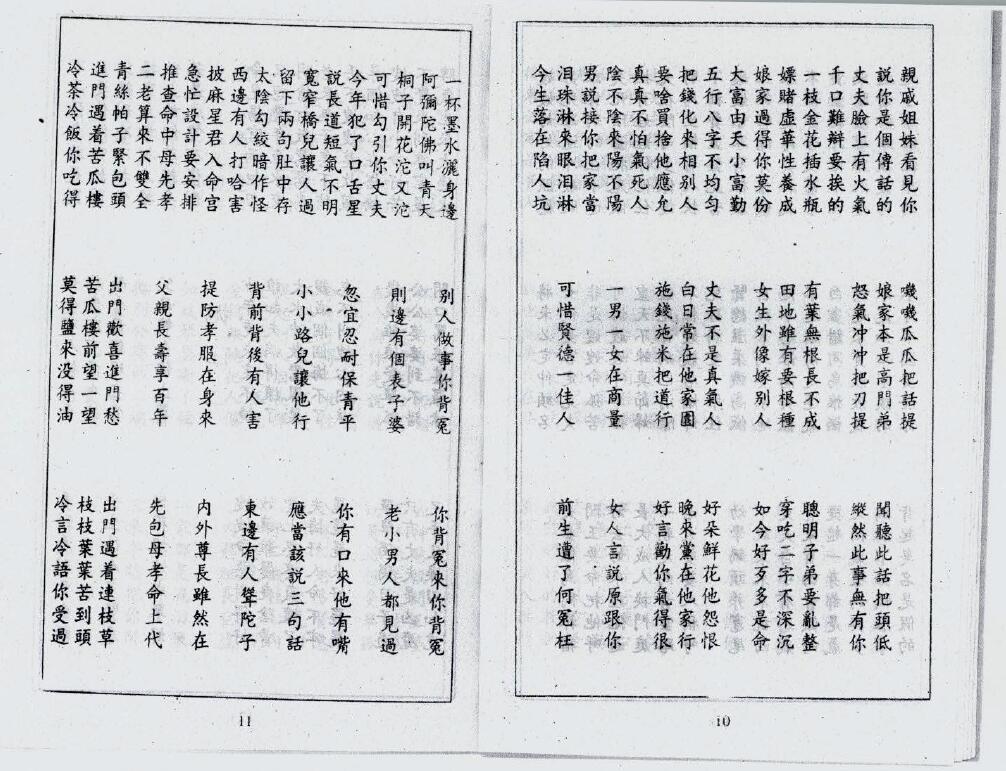 親戚姐妹看見你 嘰嘰瓜瓜把話提
說你是個傳話的 娘家本是高門弟 聞聽此話把頭低
丈夫臉上有火氣 怒氣冲冲把刀提 縱然此事無有你
千口難辯要挨的
一枝金花插水瓶 有葉無根長不成 聰明子弟要亂整
嫖賭虛華性養成 田地雖有要根種 穿吃二字不深沉
娘家過得你莫份 女生外像嫁別人 如今好歹多是命
大富由天小富勤
五行八字不均勻 丈夫不是真氣人 好朵鮮花他怨恨
把錢化來相別人 白日常在他家圓 晚來黨在他家行
耍啥買捨他應允 施錢施米把道行 好言勸你氣得很
真真不怕氣死人
陰不陰來陽不陽 一男一女在商量 女人言說原跟你
男說接你把家當
泪珠淋來眼泪淋 可惜賢德一佳人 前生遭了何冤枉
今生落在陷人坑
10
一杯墨水灑身邊 別人做事你背冤 你背冤來你背冤
阿彌陀佛叫青天
桐子開花沱又沱 則邊有個表子婆 老小男人都見過
可惜勾引你丈夫
今年犯了口舌星 忽宜忍耐保青平 你有口來他有嘴
說長道短氣不明
寬窄橋兒讓人過 小小路兒讓他行 應當該說三句話
留下兩句肚中存
太陰勾絞暗作怪 背前背後有人害 東邊有人聳陀子
西邊有人打哈害
披麻星君入命宫 提防孝服在身來 内外尊長雖然在
急忙設計要安排
推查命中母先孝 父親長壽享百年 先包母孝命上代
二老算來不雙全
青絲帕子緊包頭 出門歡喜進門愁 出門遇着連枝草
進門遇着苦瓜樓 苦瓜樓前望一望 枝枝葉葉苦到頭
冷茶冷飯你吃得 莫得鹽來没得油 冷言冷語你受過
11